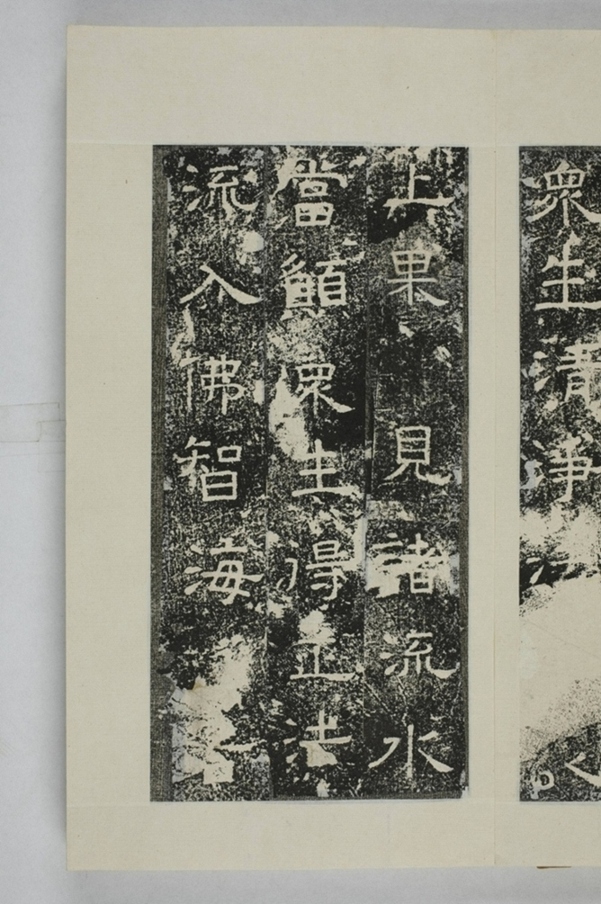 衆生清淨
上果 見諸流水
當願眾生得正法
流入佛智海